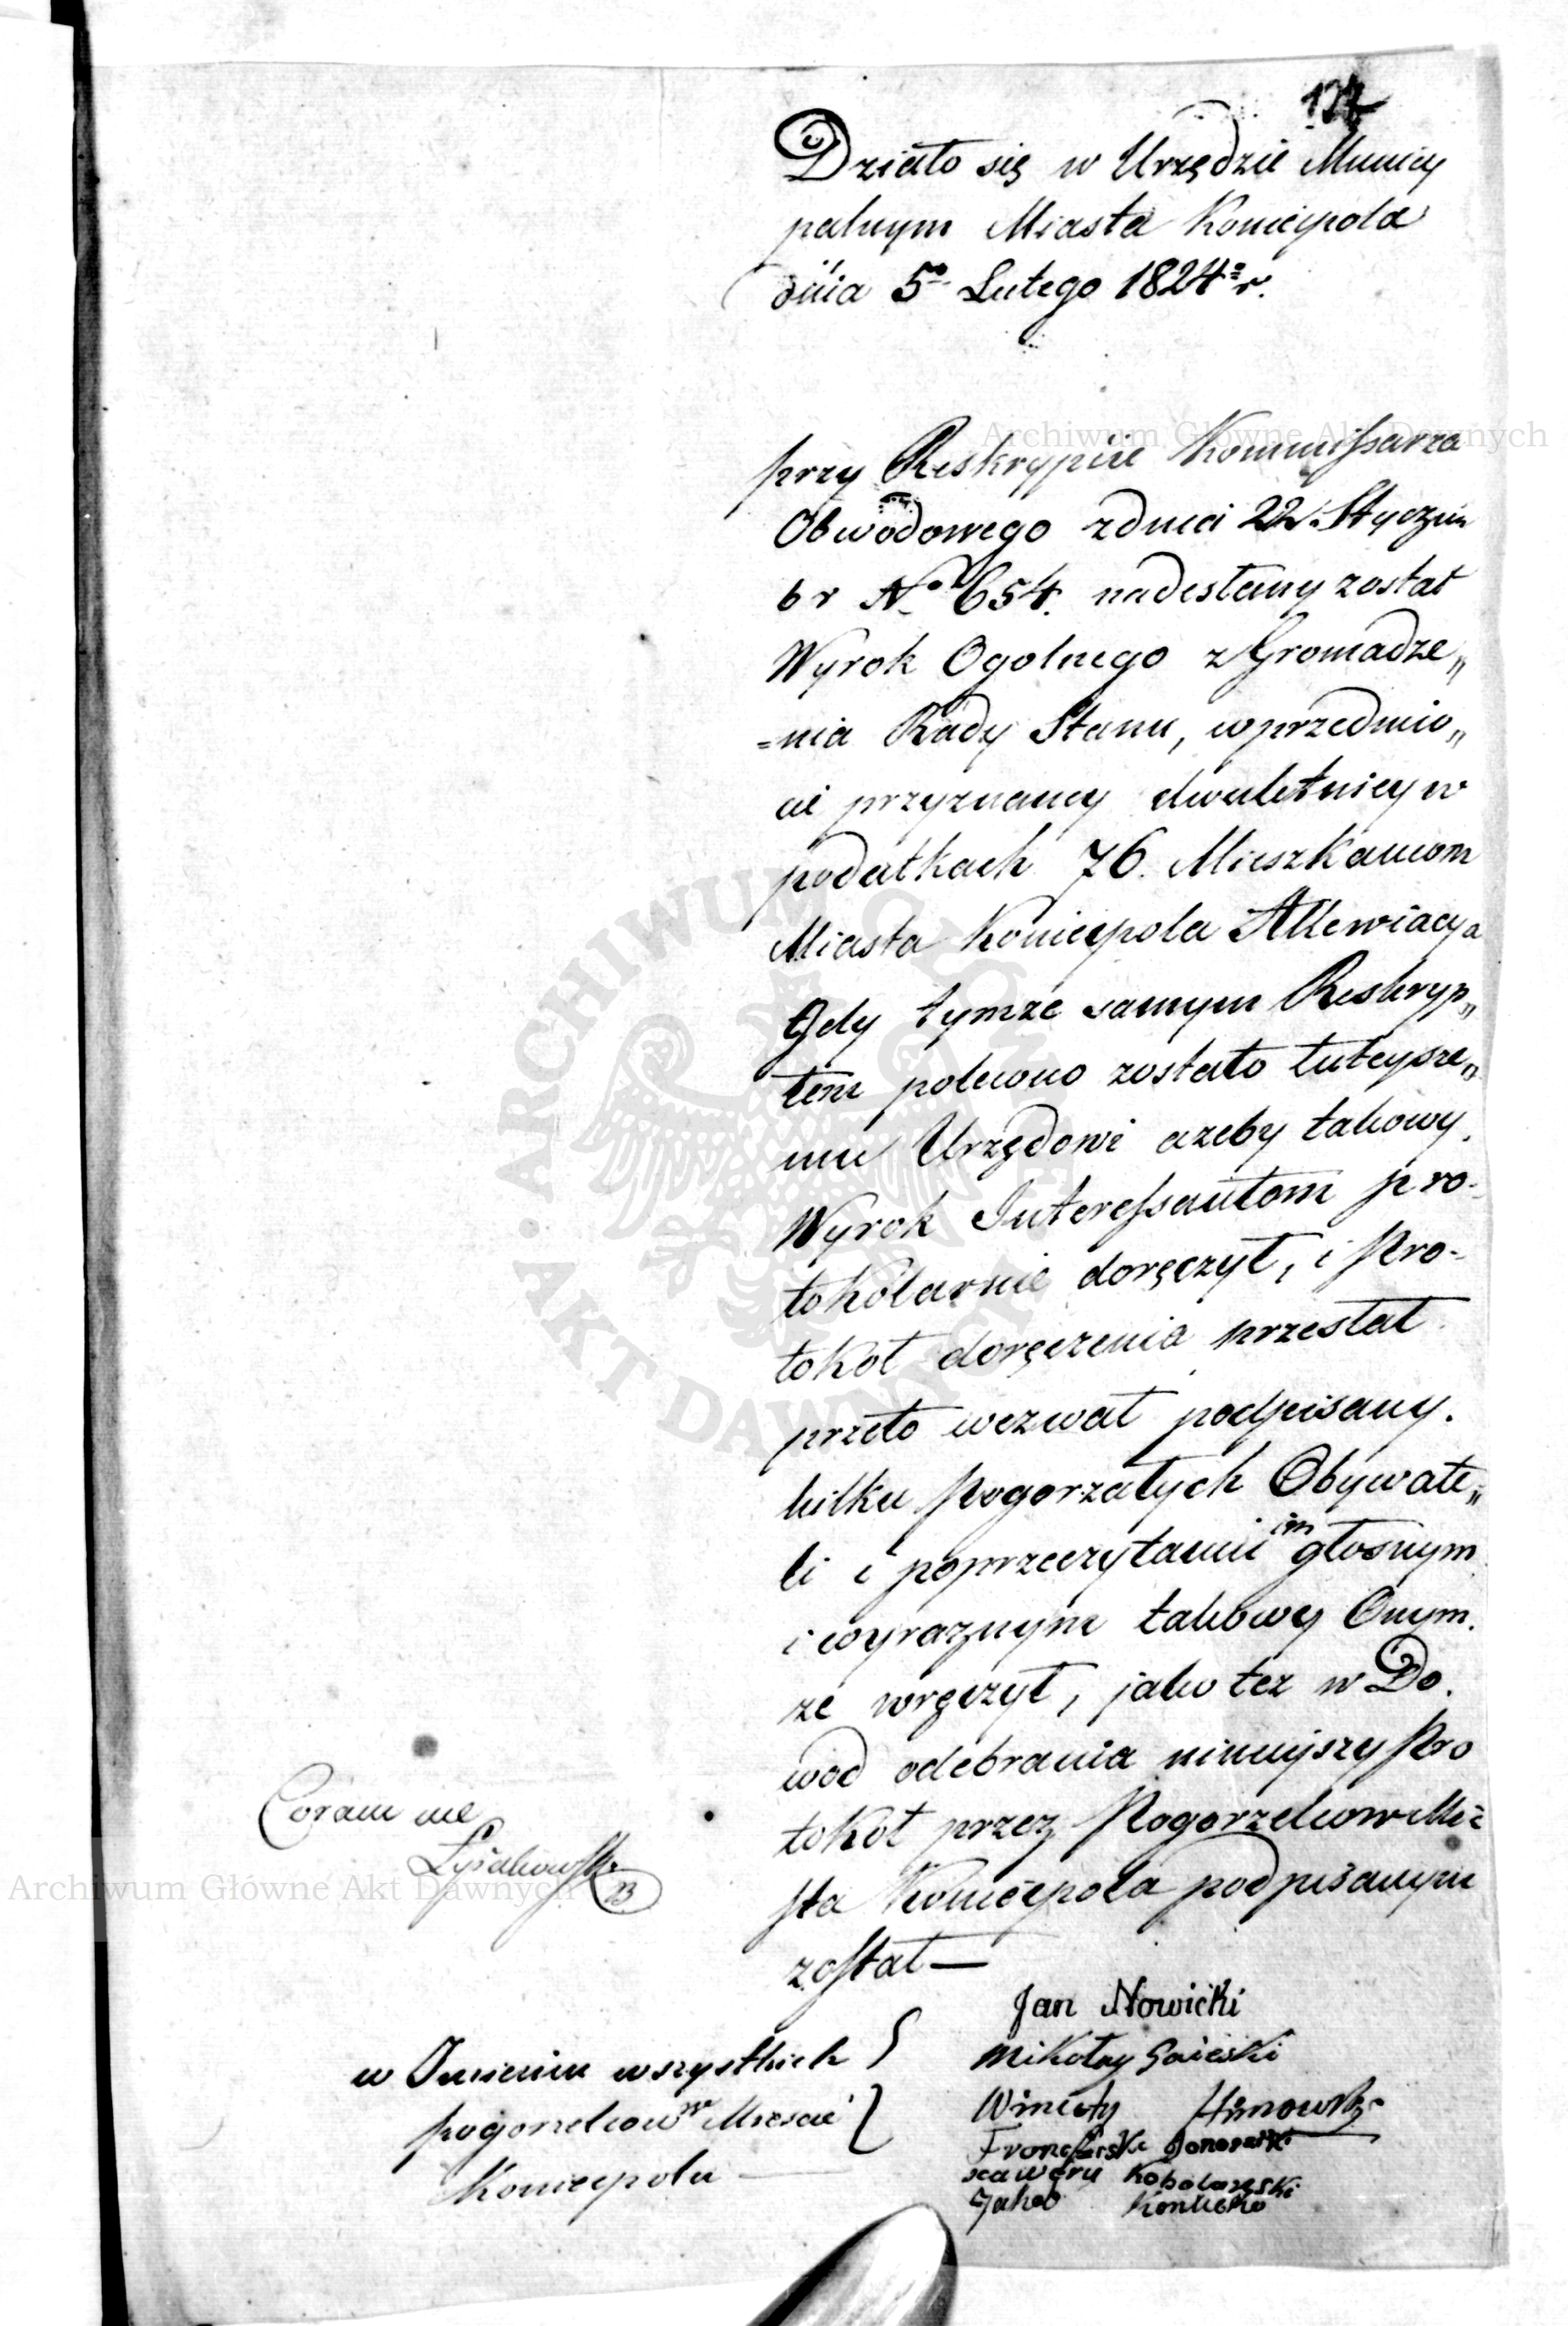 137
Działo się w Urzędzie Municy
palnym Miasta Koniecpola
dnia 5º Lutego 1824 r.
przy Reskrypcie Kommissarza
Obwodowego z dnia 22. Stycznia
b r Nº 654. nadesłany został
Wyrok Ogolnego zGromadze„
=nia Rady Stanu, w przedmio„
cie przyznaney dwuletniey w
podatkach 76. Mieszkancom
Miasta Koniecpola Allewiacya
Gdy tymze samym Reskryp„
tem polecono zostało tuteysze„
mu Urzędowi azeby takowy
Wyrok Interessantom pro-
tokólarnie doręczył, i Pro-
tokół doręczenia przesłał
przeto wezwał podpisany.
kilku Pogorzałych Obywate„
li i poprzeczytaniu im głosnym
i wyraznym takowy Onym.
ze wręczył, jako tez w Do.
wod odebrania ninieyszy Pro
tokół przez Pogorzelcow Mia
sta Koniecpola podpisanym
został —
Coram me
Łysakowski
B
w Imieniu wszystkich
pogorzelcow w Miescie
Koniecpolu —
Jan Nowicki
Mikołay
Wincenty
Franciszek
xawery
Jakob
Archiwum Główne Akt Dawnych
Archiwum Główne Akt Dawnych
ARCHIWUM GŁÓWNE · AKT DAWNYCH ·